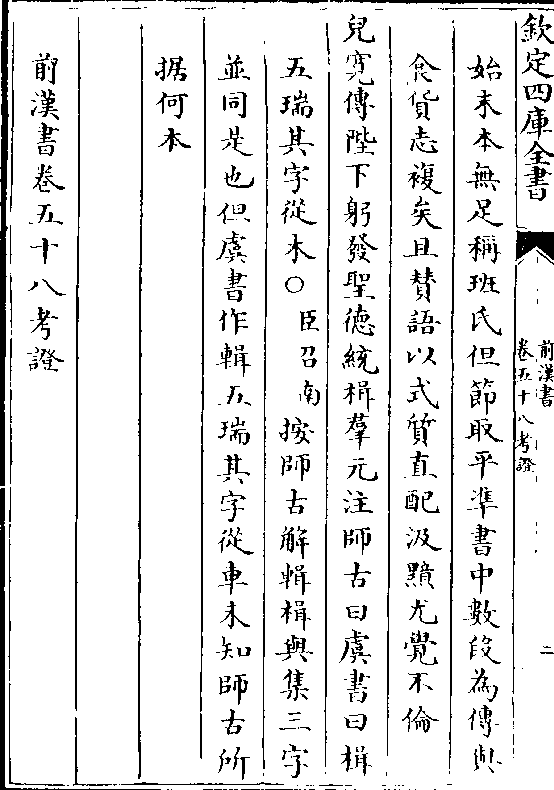 欽定四庫全書
前漢書
卷五十八考證
二
始末本無足稱班氏但節取平準書中數段為傳與
食貨志複矣且賛語以式質直配汲黯尤覺不倫
兒寛傳陛下躬發聖徳統楫羣元注師古曰虞書曰楫
五瑞其字從木○臣召南按師古解輯楫與集三字
並同是也但虞書作輯五瑞其字從車未知師古所
据何本
前漢書卷五十八考證